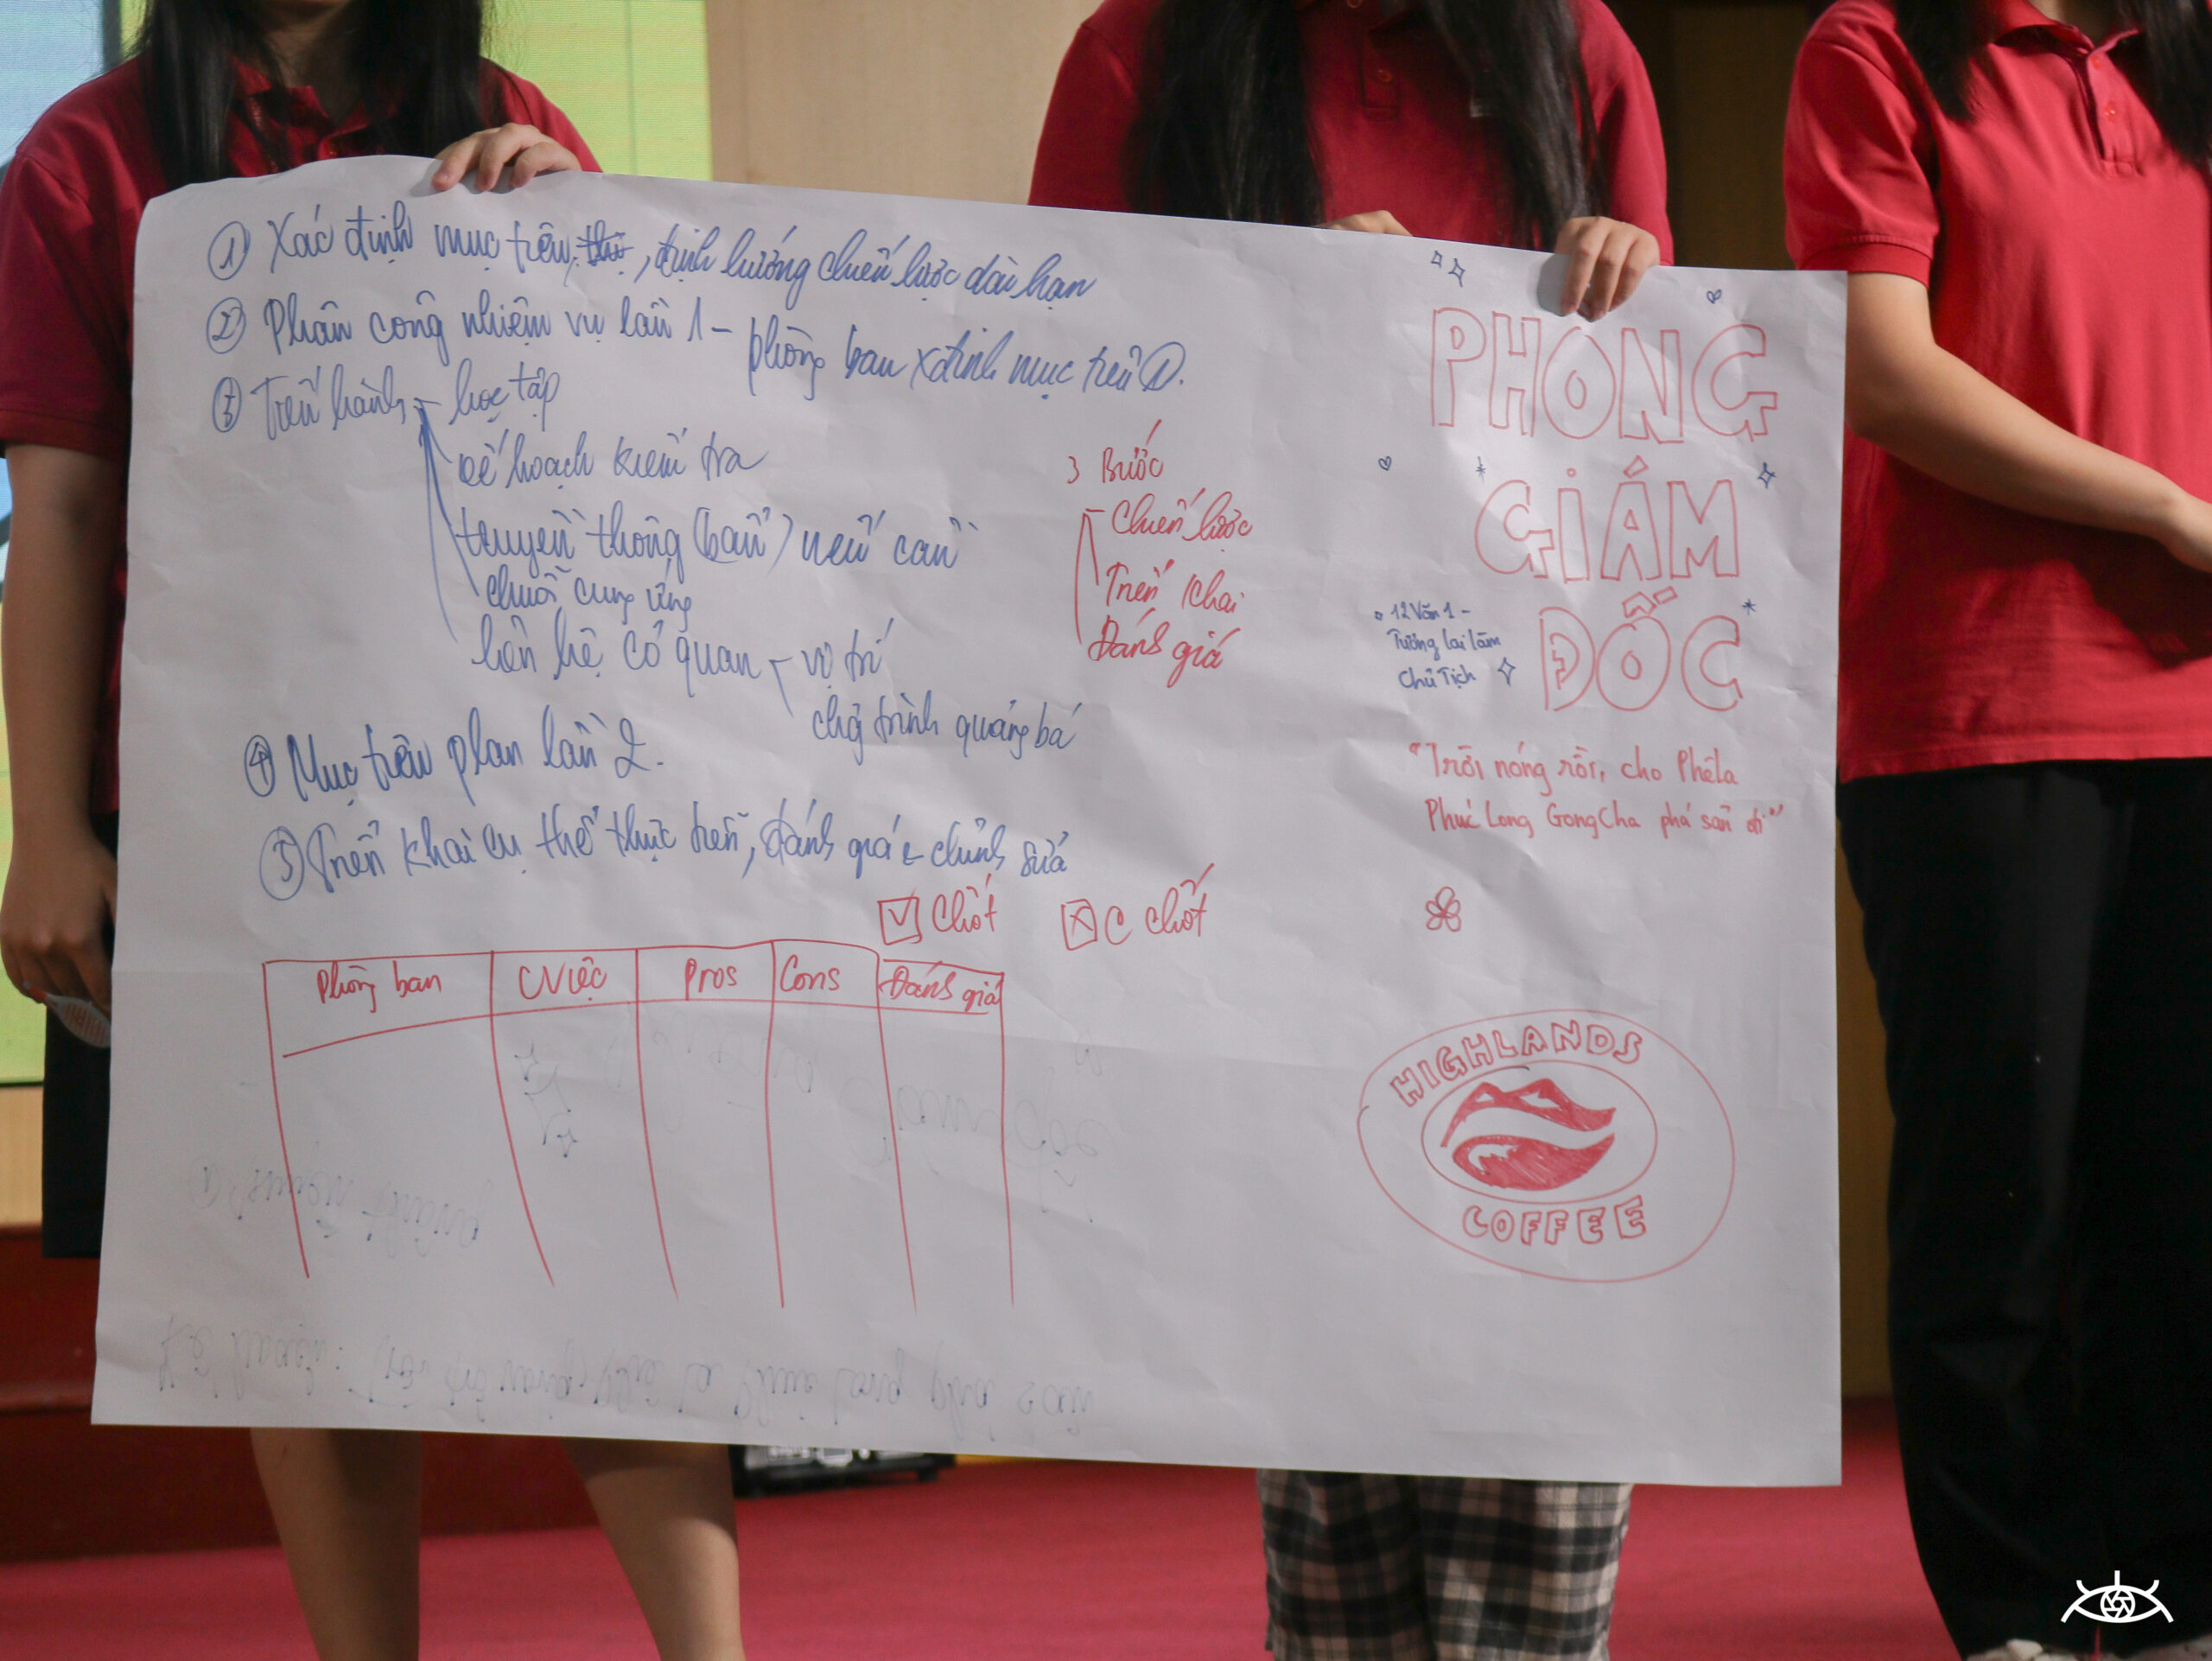 ① Xác định mục tiêu, định hướng chiến lược dài hạn
② Phân công nhiệm vụ lần 1 - phòng ban xđịnh mục tiêu ①.
③ Tiến hành - học tập
kế hoạch kiểm tra
truyền thông (bẩn) nếu cần
chuỗi cung ứng
liên hệ cơ quan - vị trí
chg trình quảng bá
④ Mục tiêu plan lần 2.
⑤ Triển khai cụ thể thực tiễn, đánh giá & chỉnh sửa
3 Bước
- Chiến lược
Triển khai
Đánh giá
☑ Chốt ☒ C chốt
Phòng ban Cviệc Pros Cons Đánh giá
PHONG
GIÁM
ĐỐC
12 Văn 1 -
Tương lai làm
Chủ Tịch
"Trời nóng rồi, cho Phêla
Phúc Long GongCha phá sản đi"
HIGHLANDS
COFFEE